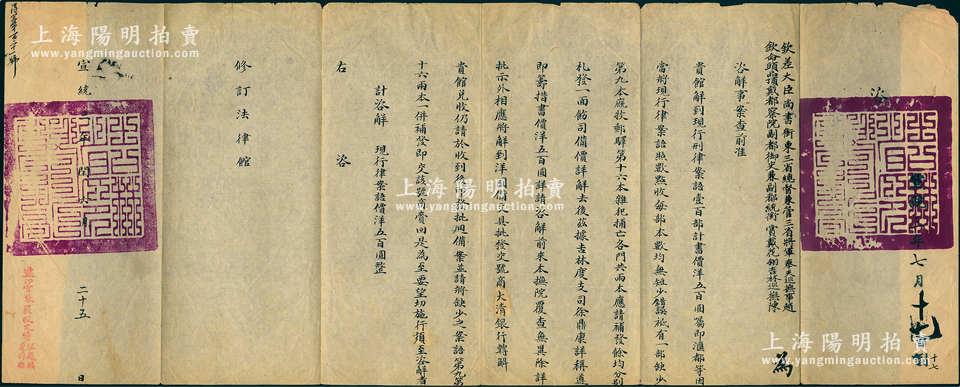 咨
欽差大臣尚書銜東三省總督兼管三省將軍奉天巡撫事趙
欽命頭品頂戴都察院副都御史兼副都統銜賞戴花翎吉林巡撫陳
為
咨解事案查前准
貴館解到現行刑律案語壹百部計書價洋五百圓囑即滙都等因
當將現行律案語照數點收每部本數均無短少錯誤祗有一部缺少
第九本廐牧郵驛第十六本雜犯捕亡各門共兩本應請補發餘均分別
札發一面飭司備價詳解去後茲據吉林度支司徐鼎康詳稱遵
即籌措書價洋五百圓詳請咨解前來本撫院覆查無異除詳
批示外相應將解到洋
備文具批發交號商大清銀行轉解
貴館兌收仍請於收到後
批迴備案並請將缺少之案語第九第
十六兩本一併補發即交該號回費回是為至要望切施行須至咨解者
計咨解 現行律案語價洋五百圓整
右 咨
修訂法律館
宣統三年閏六月 二十五 日
七月十七
上海陽明拍賣
www.yangmingauction.com
上海陽明拍賣
www.yangmingauction.com
上海陽明拍賣
www.yangmingauction.com
上海陽明拍賣
www.yangmingauction.com
上海陽明拍賣
www.yangmingauction.com